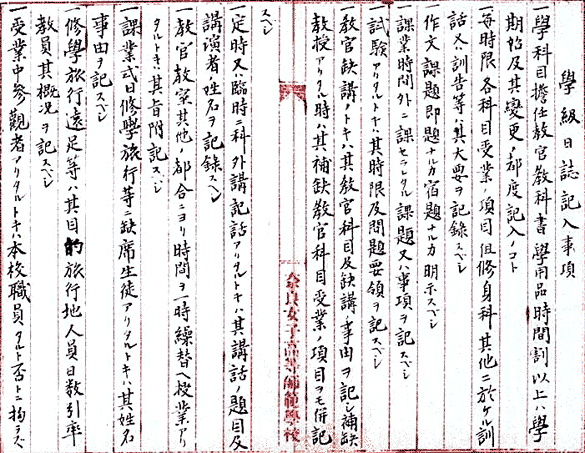 學級日誌記入事項
一學科目擔任教官教科書學用品時間割以上ハ學
期始及其ノ變更ノ都度記入ノコト
一毎時限各科目受業ノ項目但修身科其他ニ於ケル訓
話又ハ訓告等ハ其大要ヲ記録スベシ
一作文課題即題ナルカ宿題ナルカ明示スベシ
一課業時間外ニ課セラレタル課題又ハ事項ヲ記スベシ
一試驗アリタルトキハ其時限及問題要領ヲ記スベシ
一教官缺講ノトキハ其教官科目及缺講ノ事由ヲ記シ補缺
教授アリタル時ハ其補缺教官科目受業ノ項目ヲモ併記
スベシ
奈良女子高等師範學校
一定時又ハ臨時ニ科外講話アリタルトキハ其講話ノ題目及
講演者姓名ヲ記録スベシ
一教官教室其他ノ都合ニヨリ時間ヲ一時繰替ヘ授業アリ
タルトキハ其旨附記スベシ
一課業式日修學旅行等ニ缺席生徒アリタルトキハ其姓名
事由ヲ記スベシ
一修學旅行遠足等ハ其目的旅行地人員日數引率
教員其概況ヲ記スベシ
一受業中參觀者アリタルトキハ本校職員タルト否トニ拘ラズ